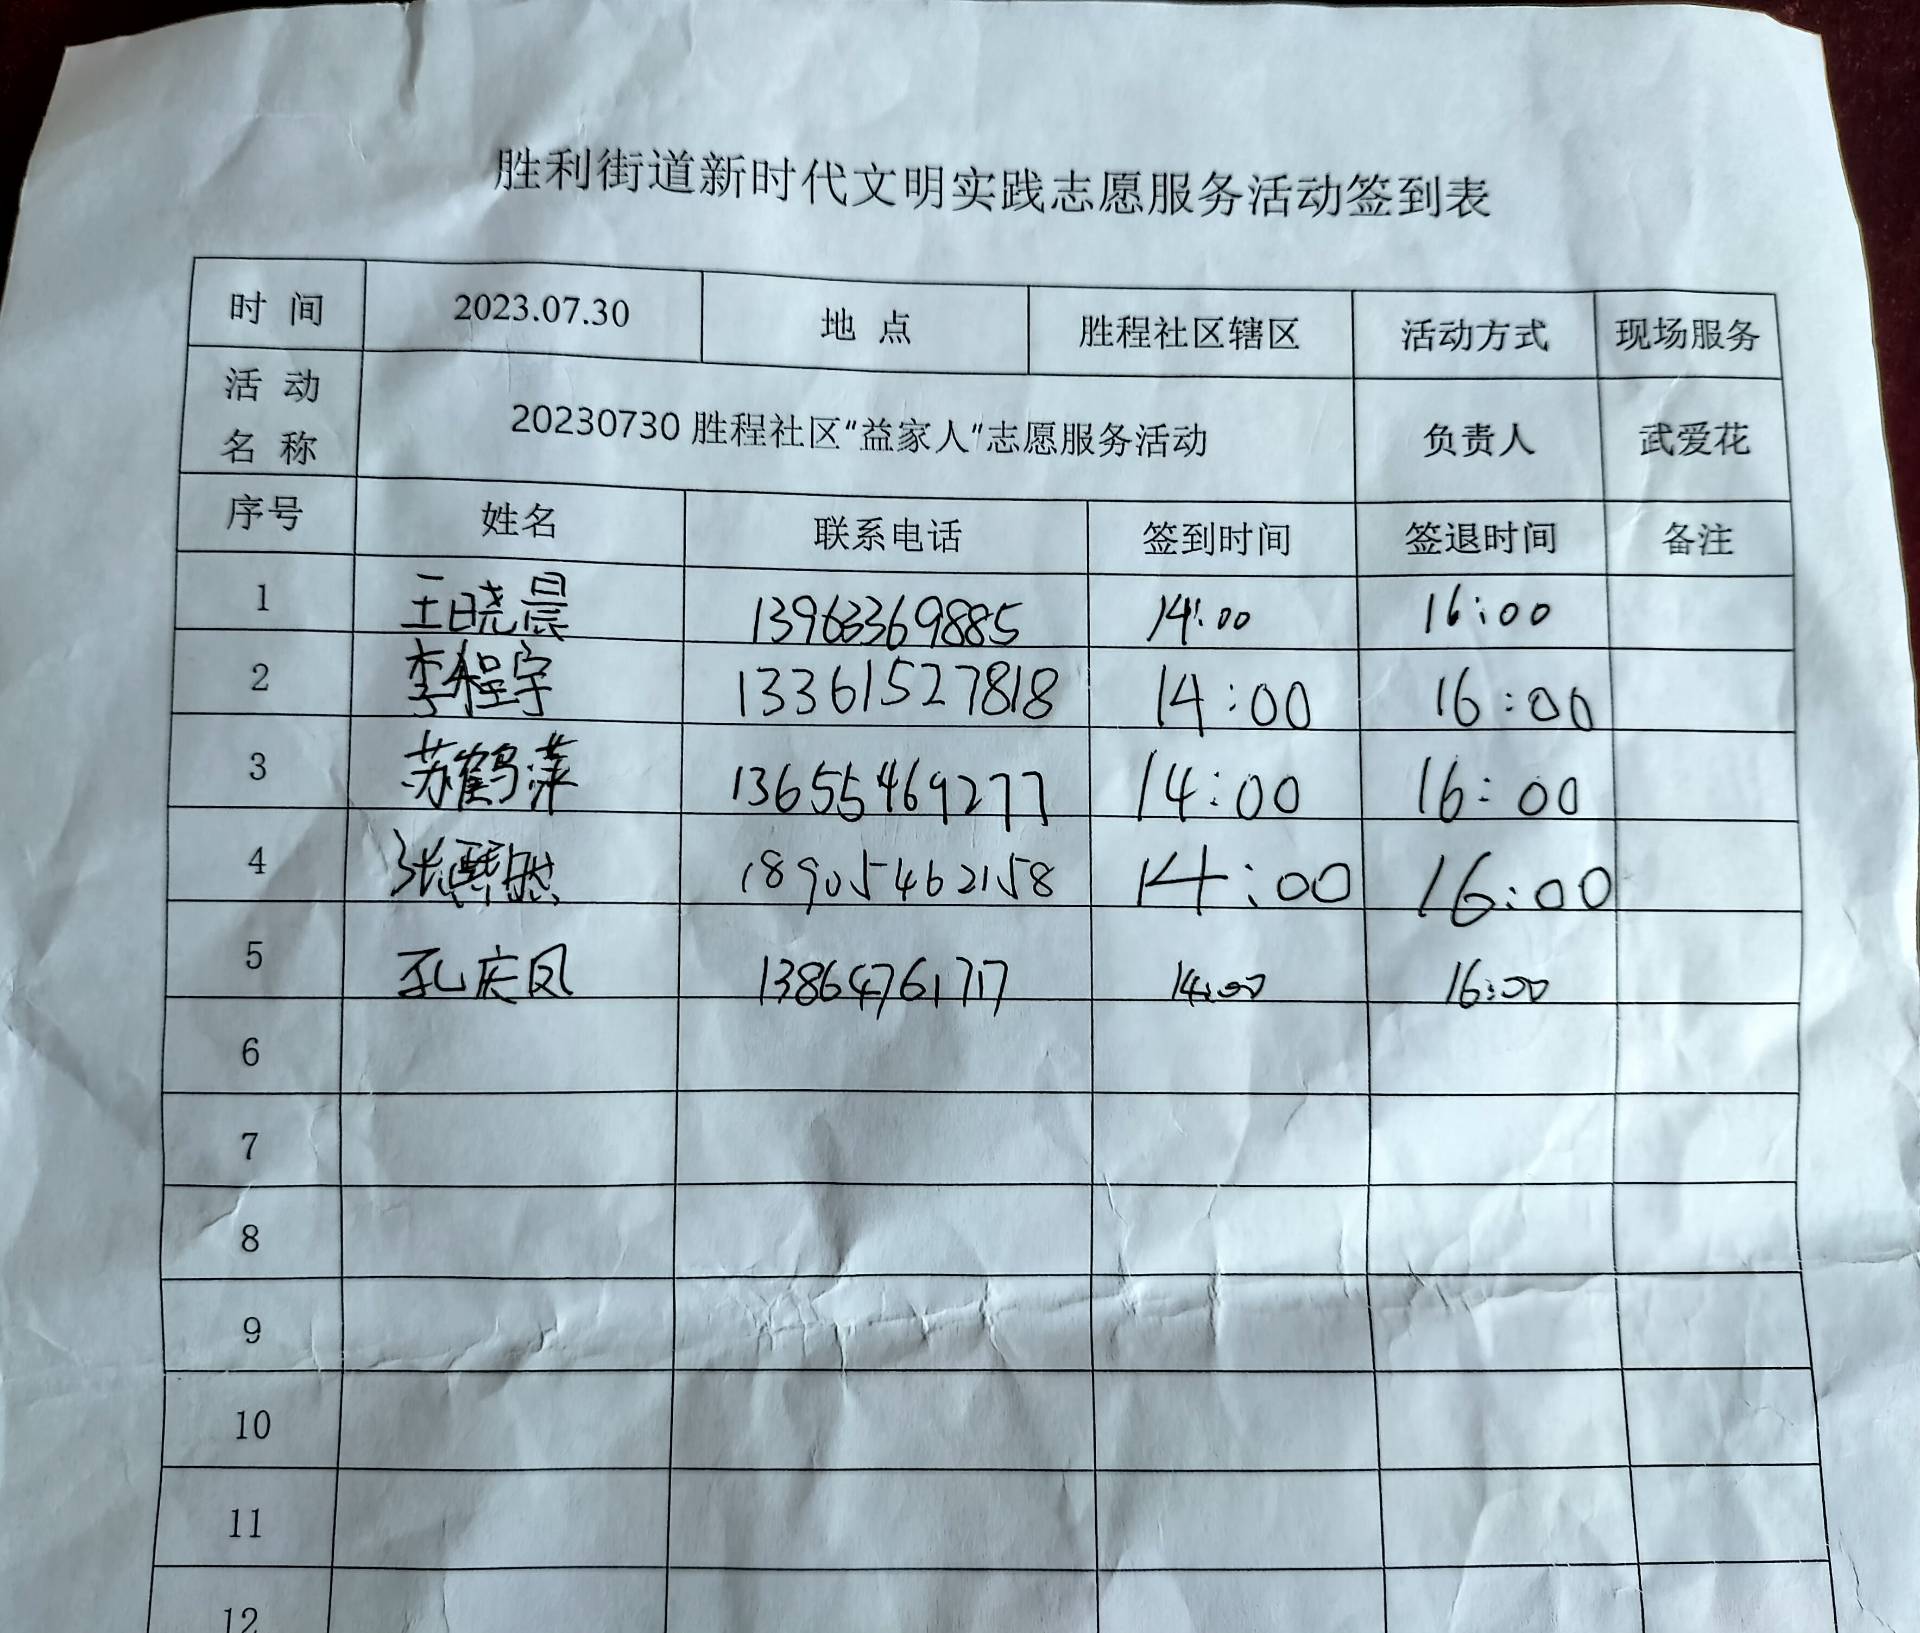 胜利街道新时代文明实践志愿服务活动签到表
时 间 2023.07.30 地 点 胜程社区辖区 活动方式 现场服务
活 动 名 称 20230730 胜程社区“益家人”志愿服务活动 负责人 武爱花
序号 姓名 联系电话 签到时间 签退时间 备注
1 王晓晨 13963369885 14:00 16:00
2 李程宇 13361527818 14:00 16:00
3 苏鹤萍 13655469277 14:00 16:00
4 张 18905462158 14:00 16:00
5 孔庆凤 13864761717 14:00 16:00
6
7
8
9
10
11
12